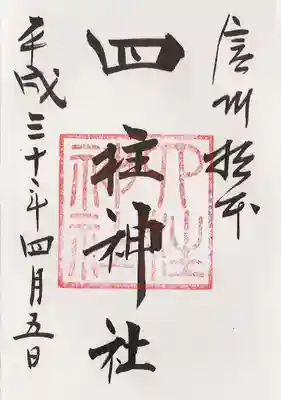 信州松本
四柱神社
平成三十年四月五日